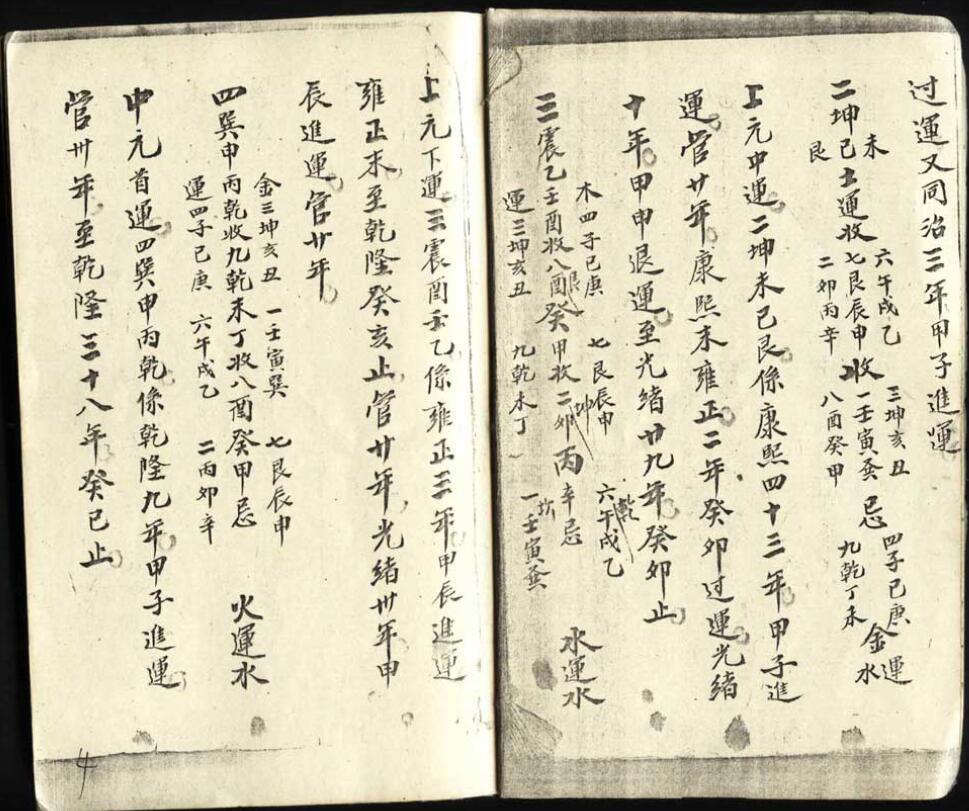 过運又同治三年甲子進運
二坤己土運收七艮辰申收一壬寅巽忌四子己庚金運
未艮 六午戌乙 二卯丙辛 三坤亥丑 八酉癸甲 九乾丁未 水
上元中運二坤未己艮係康熙四十三年甲子進
運管廿年康熙末雍正二年癸卯过運光緒
十年甲申退運至光緒廿九年癸卯止
三震乙壬酉收八酉癸甲收二卯丙辛忌 水運水
木四子己庚 七艮辰申 六午戌乙
運三坤亥丑 九乾未丁 一壬寅巽
艮 坤 乾 坎
上元下運三震酉壬乙係雍正三年甲辰進運
雍正末至乾隆癸亥止管廿年光緒卅年甲
辰進運管廿年
金三坤亥丑 一壬寅巽 七艮辰申
四巽申丙乾收九乾未丁收八酉癸甲忌 火運水
運四子己庚 六午戌乙 二丙卯辛
中元首運四巽甲丙乾係乾隆九年甲子進運
管卅年至乾隆三十八年癸巳止
4